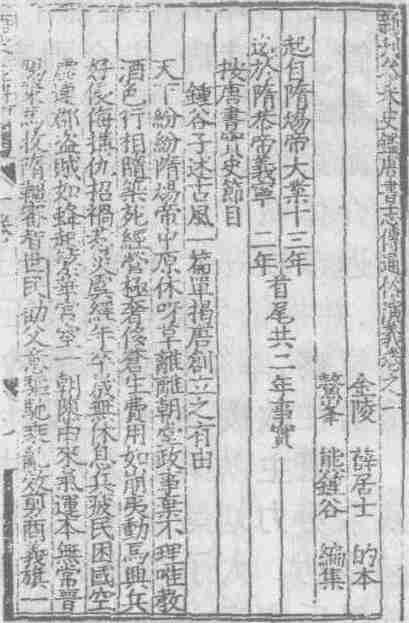 新刊參采史鑑唐書志傳通俗演義卷之一
金陵 薛居士 的本
鰲峯 熊鍾谷 編集
起自隋煬帝大業十三年
迄於隋恭帝義寧 二年
首尾共二年事實
按唐書實史節目
鍾谷子述古風一篇單揭唐創立之有由
天下紛紛隋煬帝中原休呀草離離朝堂政事棄不理唯教
酒色行相隨築死經營極奢侈蒼生費用如崩夷動烏興兵
好侵侮搆仇招禍若災虞經年卒歲無休息兵疲民困國空
虛連郡盜賊如蜂起繁華宮室一朝隳由來氣運本無常晉
智世民劝父意驅馳乘亂效剪商義旗一